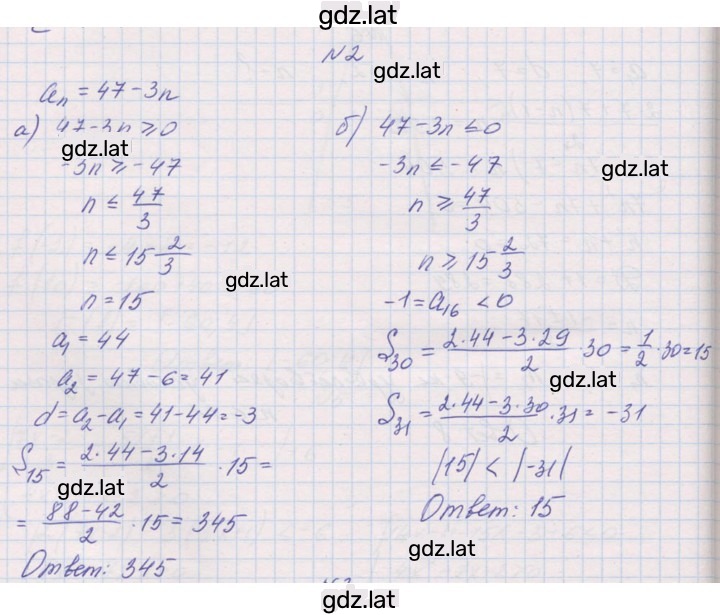 gdz.lat
N2
gdz.lat
aₙ = 47-3n
а) 47-3n ⩾ 0
gdz.lat
-3n ⩾ -47
n ≤ 47/3
n ≤ 15 2/3
gdz.lat
n = 15
a₁ = 44
a₂ = 47-6 = 41
d = a₂ - a₁ = 41-44 = -3
S₁₅ = (2·44-3·14)/2 · 15 =
gdz.lat
= (88-42)/2 · 15 = 345
Ответ: 345
б) 47-3n ≤ 0
gdz.lat
-3n ≤ -47
n ⩾ 47/3
n ⩾ 15 2/3
-1 = a₁₆ < 0
S₃₀ = (2·44-3·29)/2 · 30 = 1/2 · 30 = 15
gdz.lat
S₃₁ = (2·44-3·30)/2 · 31 = -31
|15| < |-31|
Ответ: 15
gdz.lat
gdz.lat